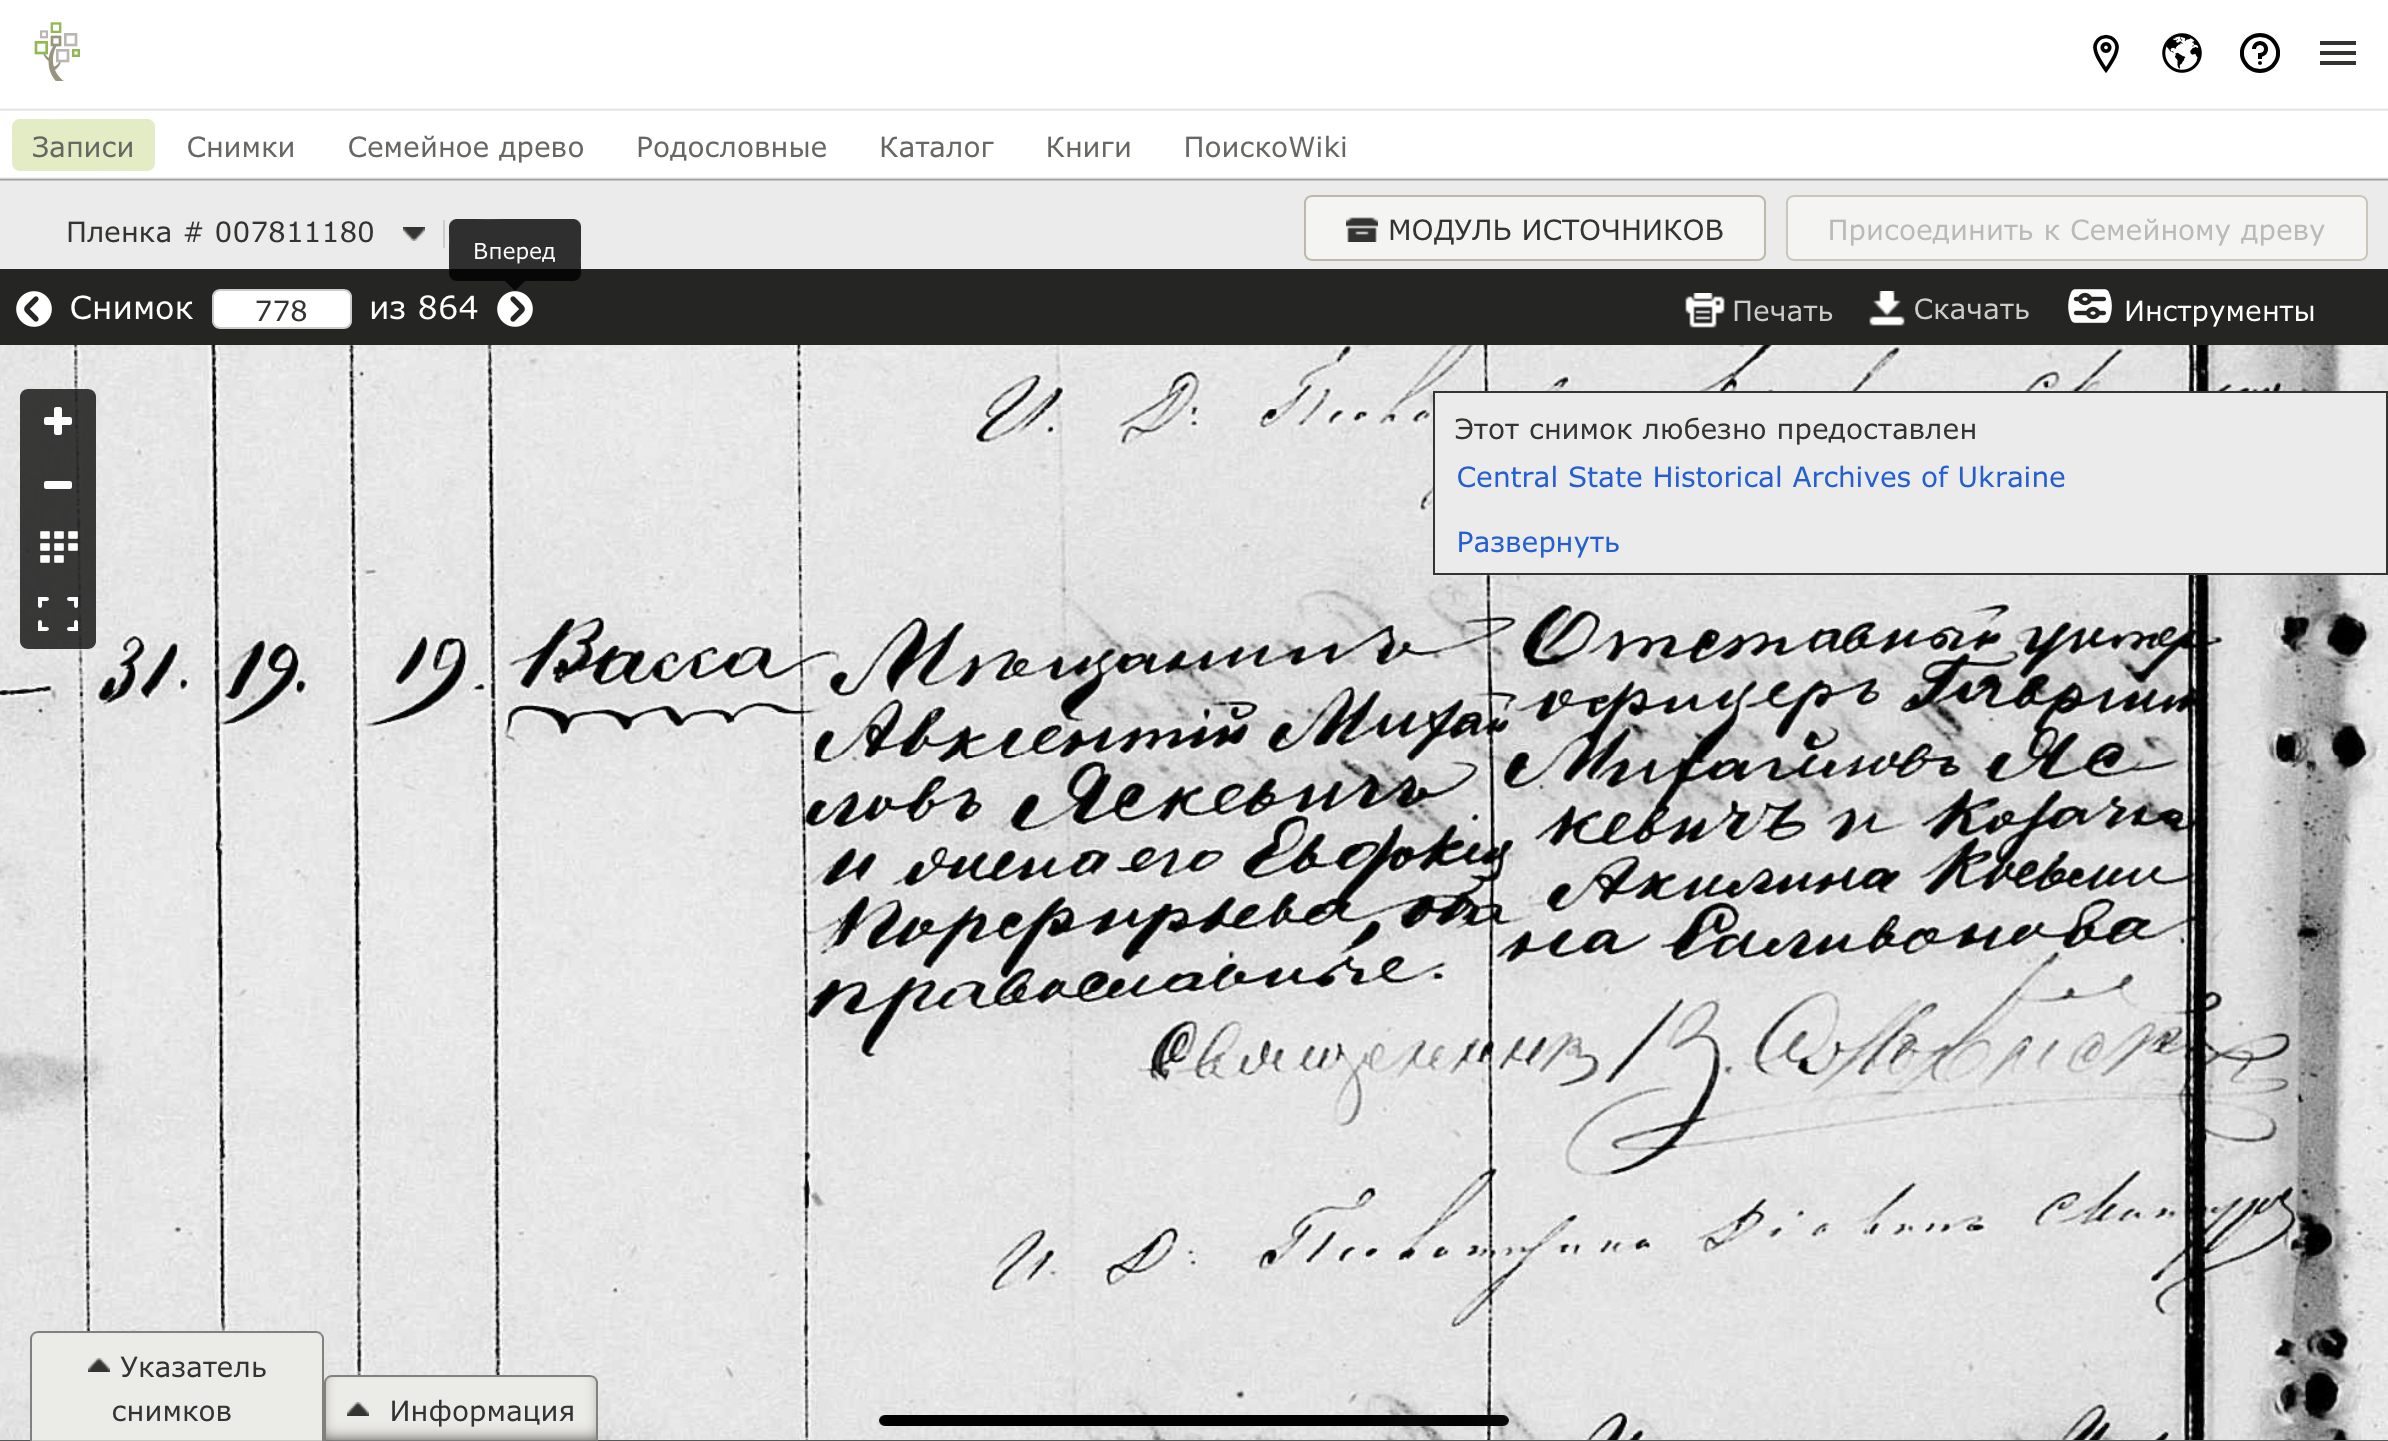 Записи Снимки Семейное древо Родословные Каталог Книги ПоискоWiki
Пленка # 007811180
Вперед
МОДУЛЬ ИСТОЧНИКОВ
Присоединить к Семейному древу
Снимок 778 из 864
Печать Скачать Инструменты
И. Д:
Этот снимок любезно предоставлен
Central State Historical Archives of Ukraine
Развернуть
31. 19. 19. Васса
Мѣщанинъ
Авксентій Михай
ловъ Яскевичъ
и жена его Евфокія
Порфирьева, оба
православные.
Отставный унтер
офицеръ Георгій
Михайловъ Яс
кевичъ и козачка
Акилина Косьми
на Саливонова
Священникъ В.
И. Д:
Указатель
снимков
Информация